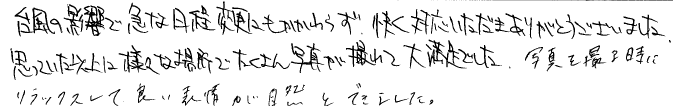 台風の影響で急な日程変更にもかかわらず、快く対応いただきありがとうございました。
思っていた以上に様々な場所でたくさん写真が撮れて大満足でした。写真を撮る時に
リラックスして良い表情が自然とできました。